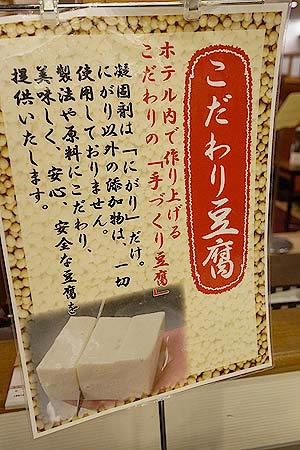 こだわり豆腐
ホテル内で作り上げる
こだわりの「手づくり豆腐」
凝固剤は「にがり」だけ。
にがり以外の添加物は、一切
使用しておりません。
製法や原料にこだわり、
美味しく、安心、安全な豆腐を
提供いたします。